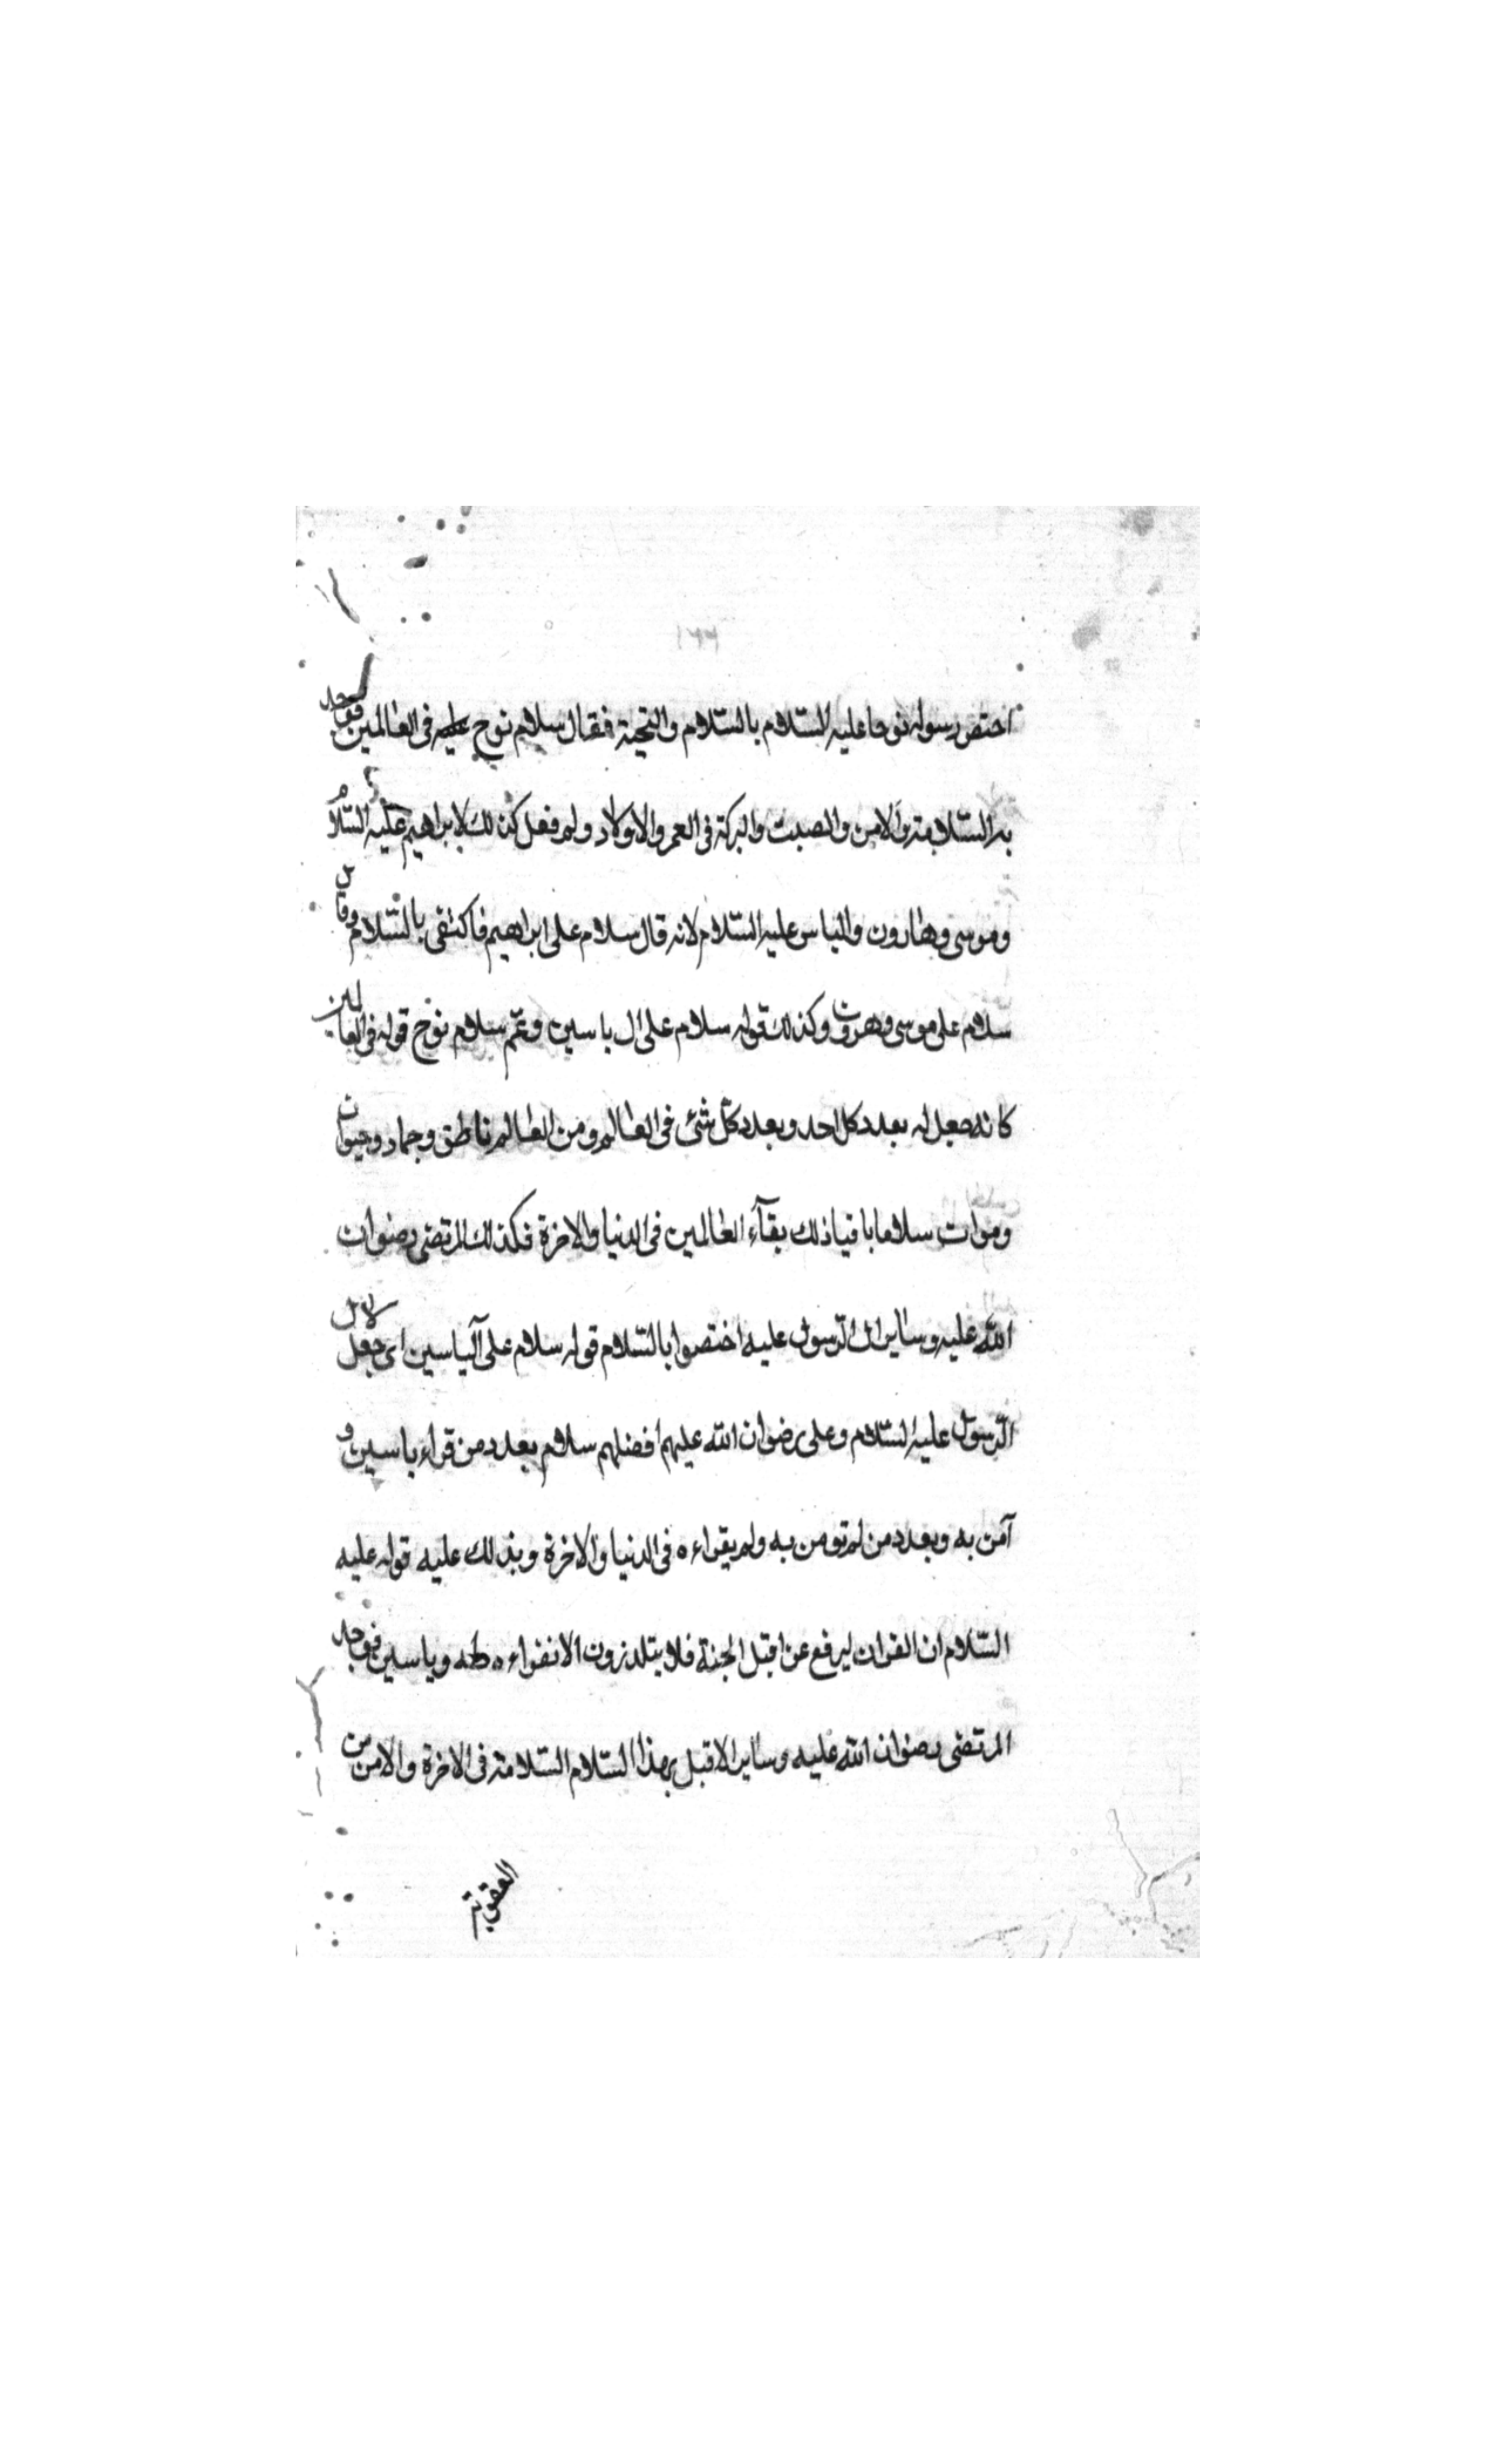 ١٦٦
اختص رسوله نوحا عليه السّلام بالسّلام والتحية فقال سلام نوح عليه فى العالمين فوجد
به السّلامة والامن والصيت والبركة فى العمر والاولاد ولم فعل كذلك لابراهيم عليه السّلام
وموسى وهارون والياس عليه السّلام لانه قال سلام على ابراهيم فاكتفى بالسّلام وقال
سلام على موسى وهرون وكذلك قوله سلام على ال ياسين وعمّم سلام نوح قوله فى العالمين
كانه جعل له بعدد كل احد وبعدد كلّ شئ فى العالم ومن العالم ناطق وجماد وحيوان
وموات سلاما باقيا ذلك بقآء العالمين فى الدنيا والاخرة فكذلك المرتضى رضوان
الله عليه وساير ال الرّسول عليه اختصوا بالسّلام قوله سلام على آلياسين اى جعل لال
الرّسول عليه السّلام وعلى رضوان الله عليهم افضلهم سلام بعدد من قراء ياسين و
آمن به وبعدد من لم تومن به ولم يقراءه فى الدنيا والاخرة وبذلك عليه قوله عليه
السّلام ان القران ليرفع عن اقبل الجنة فلا يتلذزون الا نفراءه طه وياسين فوجد
المرتضى رضوان الله عليه وساير الاقبل بهذا السّلام السّلامة فى الاخرة والامن من
العقوبة